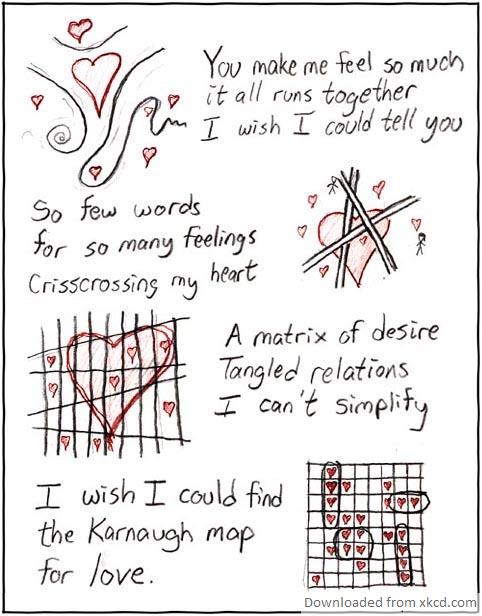 You make me feel so much
it all runs together
I wish I could tell you
So few words
for so many feelings
Crisscrossing my heart
A matrix of desire
Tangled relations
I can't simplify
I wish I could find
the Karnaugh map
for love.
Downloaded from xkcd.com